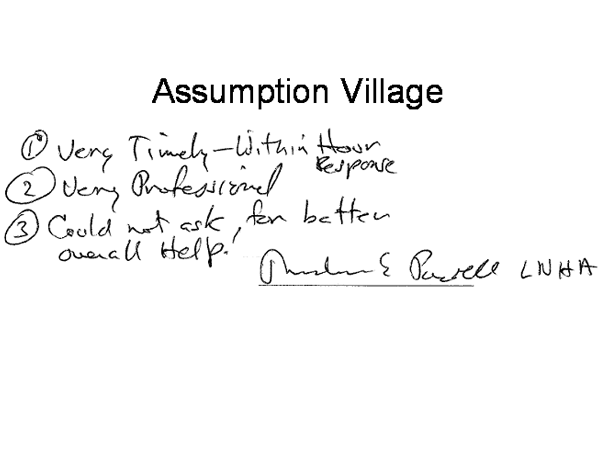 Assumption Village
① Very Timely – Within Hour
Response
② Very Professional
③ Could not ask, for better
overall Help!
E Powell LNHA